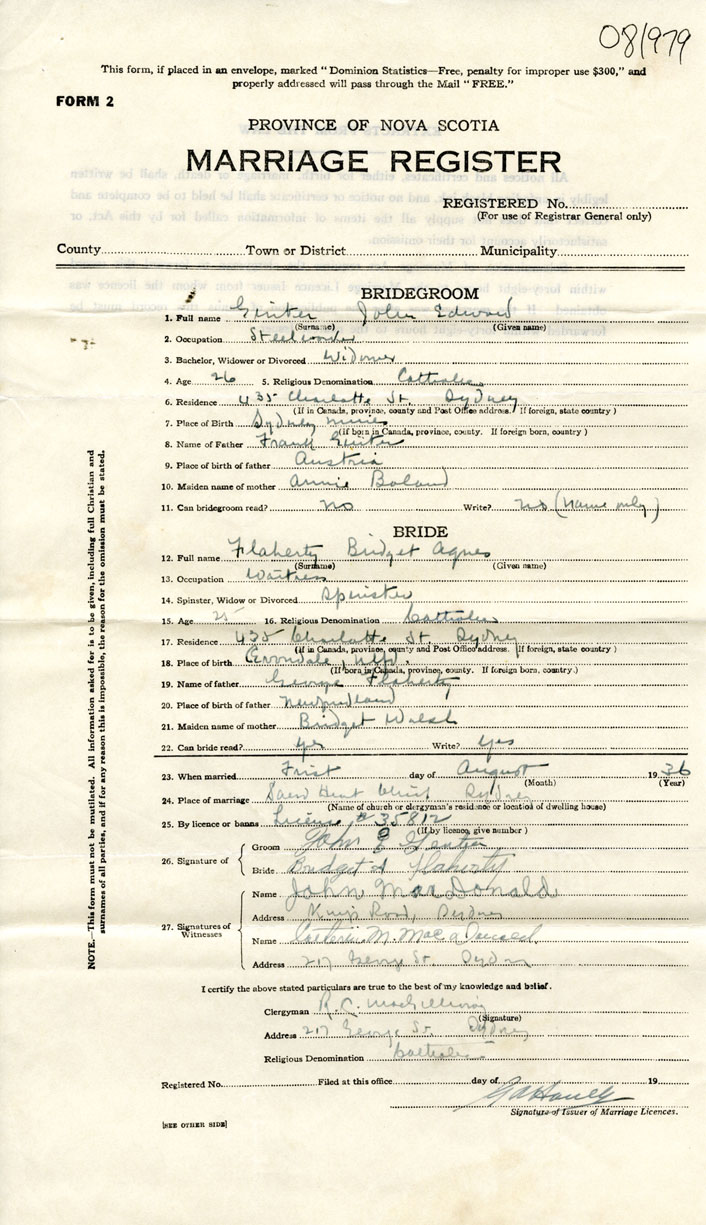 08/979
This form, if placed in an envelope, marked "Dominion Statistics—Free, penalty for improper use $300," and
properly addressed will pass through the Mail "FREE."
FORM 2
PROVINCE OF NOVA SCOTIA
MARRIAGE REGISTER
REGISTERED No.
(For use of Registrar General only)
County Town or District Municipality
BRIDEGROOM
1. Full name Ginter John Edward
(Surname) (Given name)
2. Occupation Steelworker
3. Bachelor, Widower or Divorced Widower
4. Age 26 5. Religious Denomination Catholic
6. Residence 435 Charlotte St. Sydney
(If in Canada, province, county and Post Office address. If foreign, state country)
7. Place of Birth Sydney Mines
(if born in Canada, province, county. If foreign born, country)
8. Name of Father Frank Ginter
9. Place of birth of father Austria
10. Maiden name of mother Annie Boland
11. Can bridegroom read? no Write? no (name only)
BRIDE
12. Full name Flaherty Bridget Agnes
(Surname) (Given name)
13. Occupation Waitress
14. Spinster, Widow or Divorced Spinster
15. Age 25 16. Religious Denomination Catholic
17. Residence 435 Charlotte St Sydney
(If in Canada, province, county and Post Office address. If foreign, state country)
18. Place of birth Avondale, Nfld.
(If born in Canada, province, county. If foreign born, country.)
19. Name of father George Flaherty
20. Place of birth of father Newfoundland
21. Maiden name of mother Bridget Walsh
22. Can bride read? yes Write? yes
23. When married First day of August 1936
(Month) (Year)
24. Place of marriage Sacred Heart Church Sydney
(Name of church or clergyman's residence or location of dwelling house)
25. By licence or banns License # 35812
(If by licence, give number)
26. Signature of
Groom John E Ginter
Bride Bridget A Flaherty
27. Signatures of Witnesses
Name John MacDonald
Address Kings Road, Sydney
Name M. MacDonald
Address 217 George St. Sydney
I certify the above stated particulars are true to the best of my knowledge and belief.
Clergyman R. C. MacGillivray
(Signature)
Address 217 George St. Sydney
Religious Denomination Catholic
Registered No. Filed at this office day of 19
Signature of Issuer of Marriage Licences.
[SEE OTHER SIDE]
NOTE.—This form must not be mutilated. All information asked for is to be given, including full Christian and
surnames of all parties, and if for any reason this is impossible, the reason for the omission must be stated.